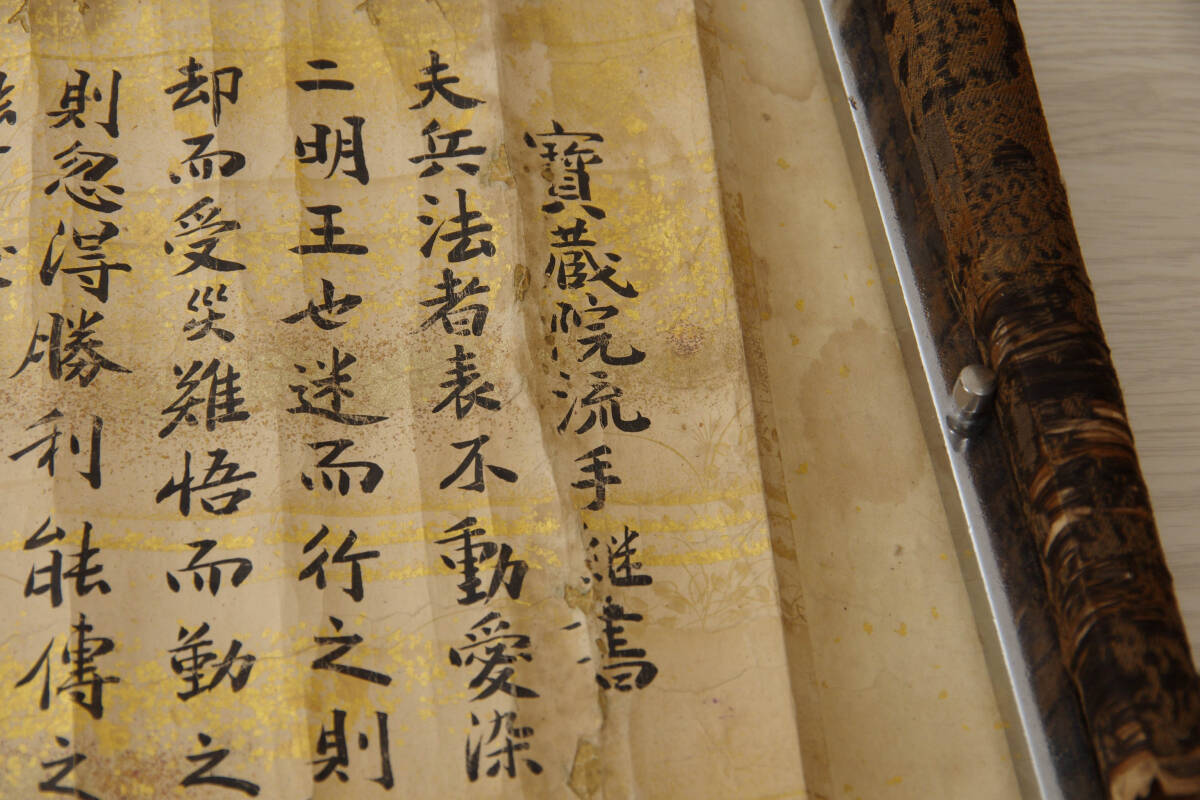 寶蔵院流手継書
夫兵法者表不動愛染
二明王也迷而行之則
却而受災難悟而勤之
則忽得勝利能傳之